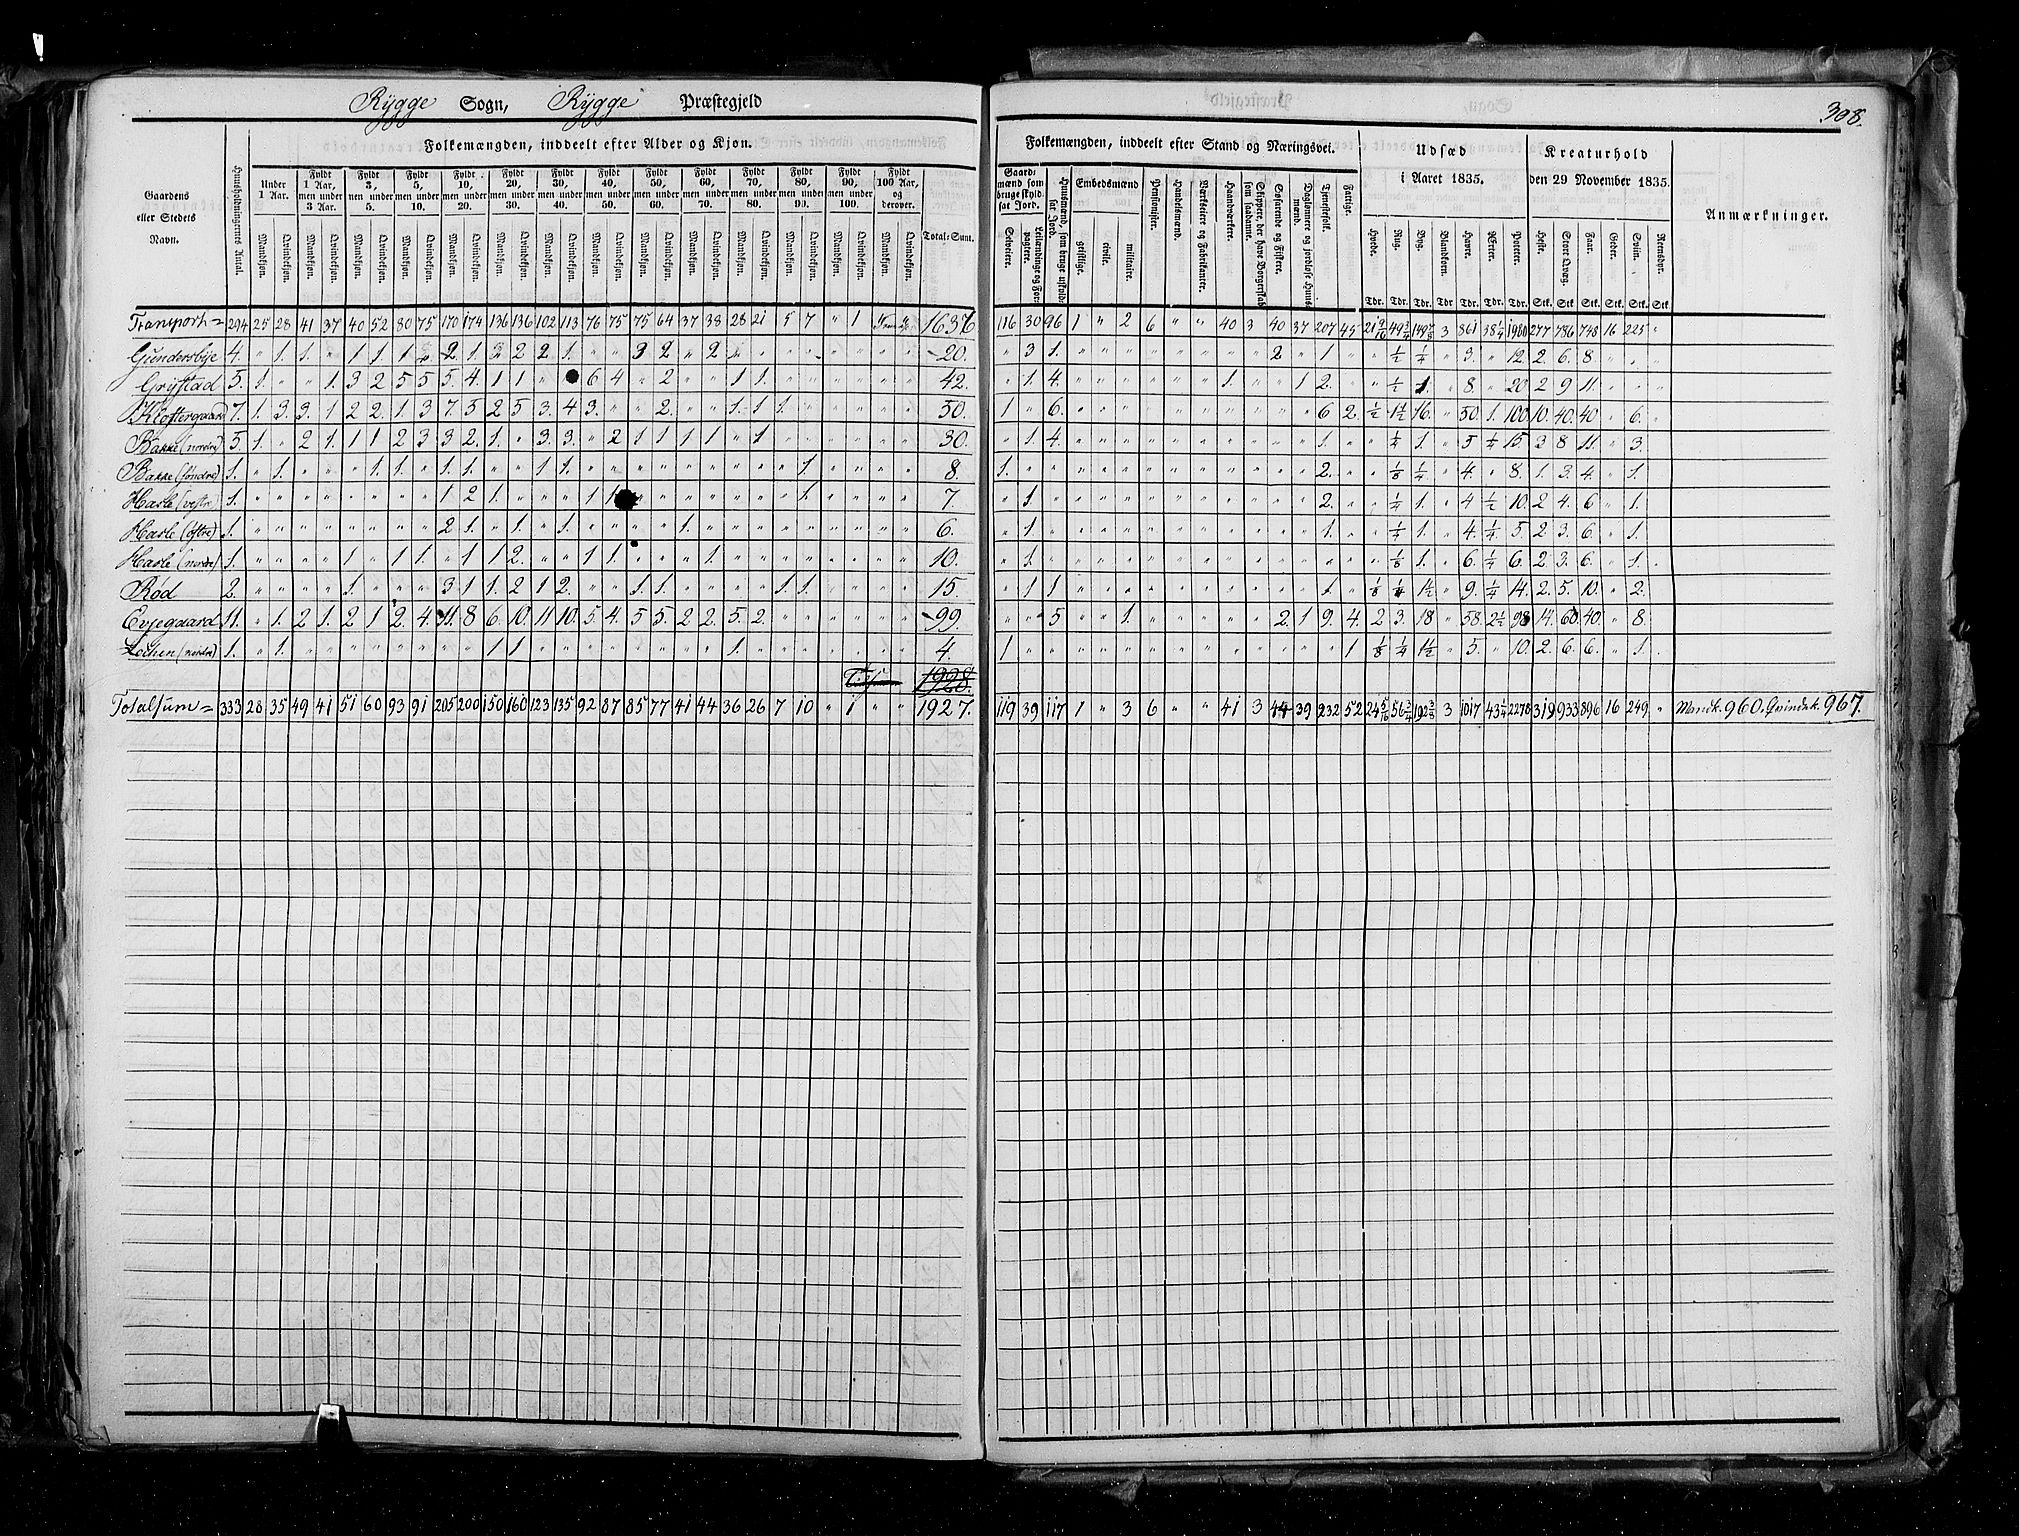 Rygge Sogn, Rygge Præstegjeld
398.
Gaardens eller Stedets Navn.
Huusholdningernes Antal.
Folkemængden, inddeelt efter Alder og Kjøn.
Under 1 Aar.
Fyldt 1 Aar, men under 3 Aar.
Fyldt 3, men under 5.
Fyldt 5, men under 10.
Fyldt 10, men under 20.
Fyldt 20, men under 30.
Fyldt 30, men under 40.
Fyldt 40, men under 50.
Fyldt 50, men under 60.
Fyldt 60, men under 70.
Fyldt 70, men under 80.
Fyldt 80, men under 90.
Fyldt 90, men under 100.
Fyldt 100 Aar, og derover.
Mandkjøn. Qvindekjøn.
Total-Sum.
Folkemængden, inddeelt efter Stand og Næringsvei.
Gaardmænd som bruge skyldsat Jord.
Selveiere. Leilændinge og Forpagtere.
Huusmænd, som bruge uskyldsat Jord.
Embedsmænd
geistlige. civile. militaire.
Pensionister.
Handelsmænd.
Værkeiere og Fabrikanter.
Haandværkere.
Skippere, der have Borgerskab som saadanne.
Søfarende og Fiskere.
Daglønnere og jordløse Huusmænd.
Tjenestefolk.
Fattige.
Udsæd i Aaret 1835.
Hvede. Rug. Byg. Blandkorn. Havre. Erter. Poteter.
Tdr. Tdr. Tdr. Tdr Tdr. Tdr. Tdr.
Kreaturhold den 29 November 1835.
Heste. Stort Qvæg. Faar. Geder. Sviin. Rensdyr.
Stk. Stk Stk. Stk. Stk. Stk
Anmærkninger.
Transport = 294 25 28 41 37 40 52 80 75 170 174 136 136 102 113 76 75 75 64 37 38 28 21 5 7 " 1 " " 1636 116 30 96 1 " 2 6 " " 40 3 40 37 207 45 21 9/16 49 3/4 149 7/8 3 861 38 1/4 1980 277 786 748 16 225 "
Gundersbye 4. 20. " 3 1. 2 " 1 " " 1/2 1/4 " 9. " 12. 2. 6. 8
Grystad 5. 1. " " 1. 3 2 5 5 5 4. 1 1 6 4 " 2. " " 1 1. 42. " 1. 4. 1. " " 1 2. " " 1/2 1. " 8. " 20. 2 9 11.
Klostergaard 7. 1. 3. 3. 1 2 2. 1. 3 7. 5 2 5 3. 4 3. " " 2. " " 1. 1. 1. 50. 1 " 6. 6 2. 1/2 1 1/2 16. " 50. 1. 100. 10. 40. 40. " 6.
Bakke (nordre) 5. 1. " 2 1. 1 1 2 3 3 2. 1. " 3. 3. " 2 1 1 1 1 " 1. 30. " 1. 4. 1. " " 1/4 1. " 5 1/4 15. 3 8 11. " 3.
Bakke (søndre) 1. " 1. " " " 1. 1. " 1. 1. " " 1 1. 1. 8. 1. 2. " " 1/8 1/4 " 4. " 8. 1. 3. 4. " 1.
Hasle (vestre) 1. 1 2 1. 1 1. 1. 7. " 1 2. " " 1/4 1. " 4 1/2 10. 2 4. 6 " 1.
Hasle (østre) 1. 2 1. " 1. " 1. 1. 6. " 1. 1. " " 1/4 1. " 4. 1/4 5. 2 3. 6. " 1.
Hasle (nordre) 1. 1 " 1 1. " 1 1 2. " " 1 1. 1. 10. " 1. " " 1/8 1. " 6. 1/4 6. 2 3. 6. " 1.
Rød 2. 1. 3 1 1. 2 1 2. " " 1. 1. 1 1. 15. " 1 1 1. 1/8 1/4 1 1/2 " 9. 1/4 14. 2. 5. 10. " 2.
Evjegaard 11. " 1. 2 1. 2 1 2. 4. 11. 8 6. 10. 11 10. 5 4. 5 5. 2 2. 5. 2. 99. " " 5 " " 1. 2. 1 9. 4 2 3. 18 " 58. 2 1/2 98 14. 60. 40. " 8.
Lochen (nordre) 1. " 1. 1 1 1. 4. 1 1 1/8 1/4 1 1/2 " 5. " 10. 2. 6. 6. " 1.
1928.
Totalsum = 333 28 35 49 41 51 60 93 91 205 200 150 160 123 135 92 87 85 77 41 44 36 26 7 10 " 1 " " 1927. 119 39 117 1 " 3 6 " " 41 3 44 39 232 52 24 5/16 56 3/4 192 3/8 3 1017 43 1/4 2278 319 933 896 16 249 " Mandk. 960. Qvindek. 967.